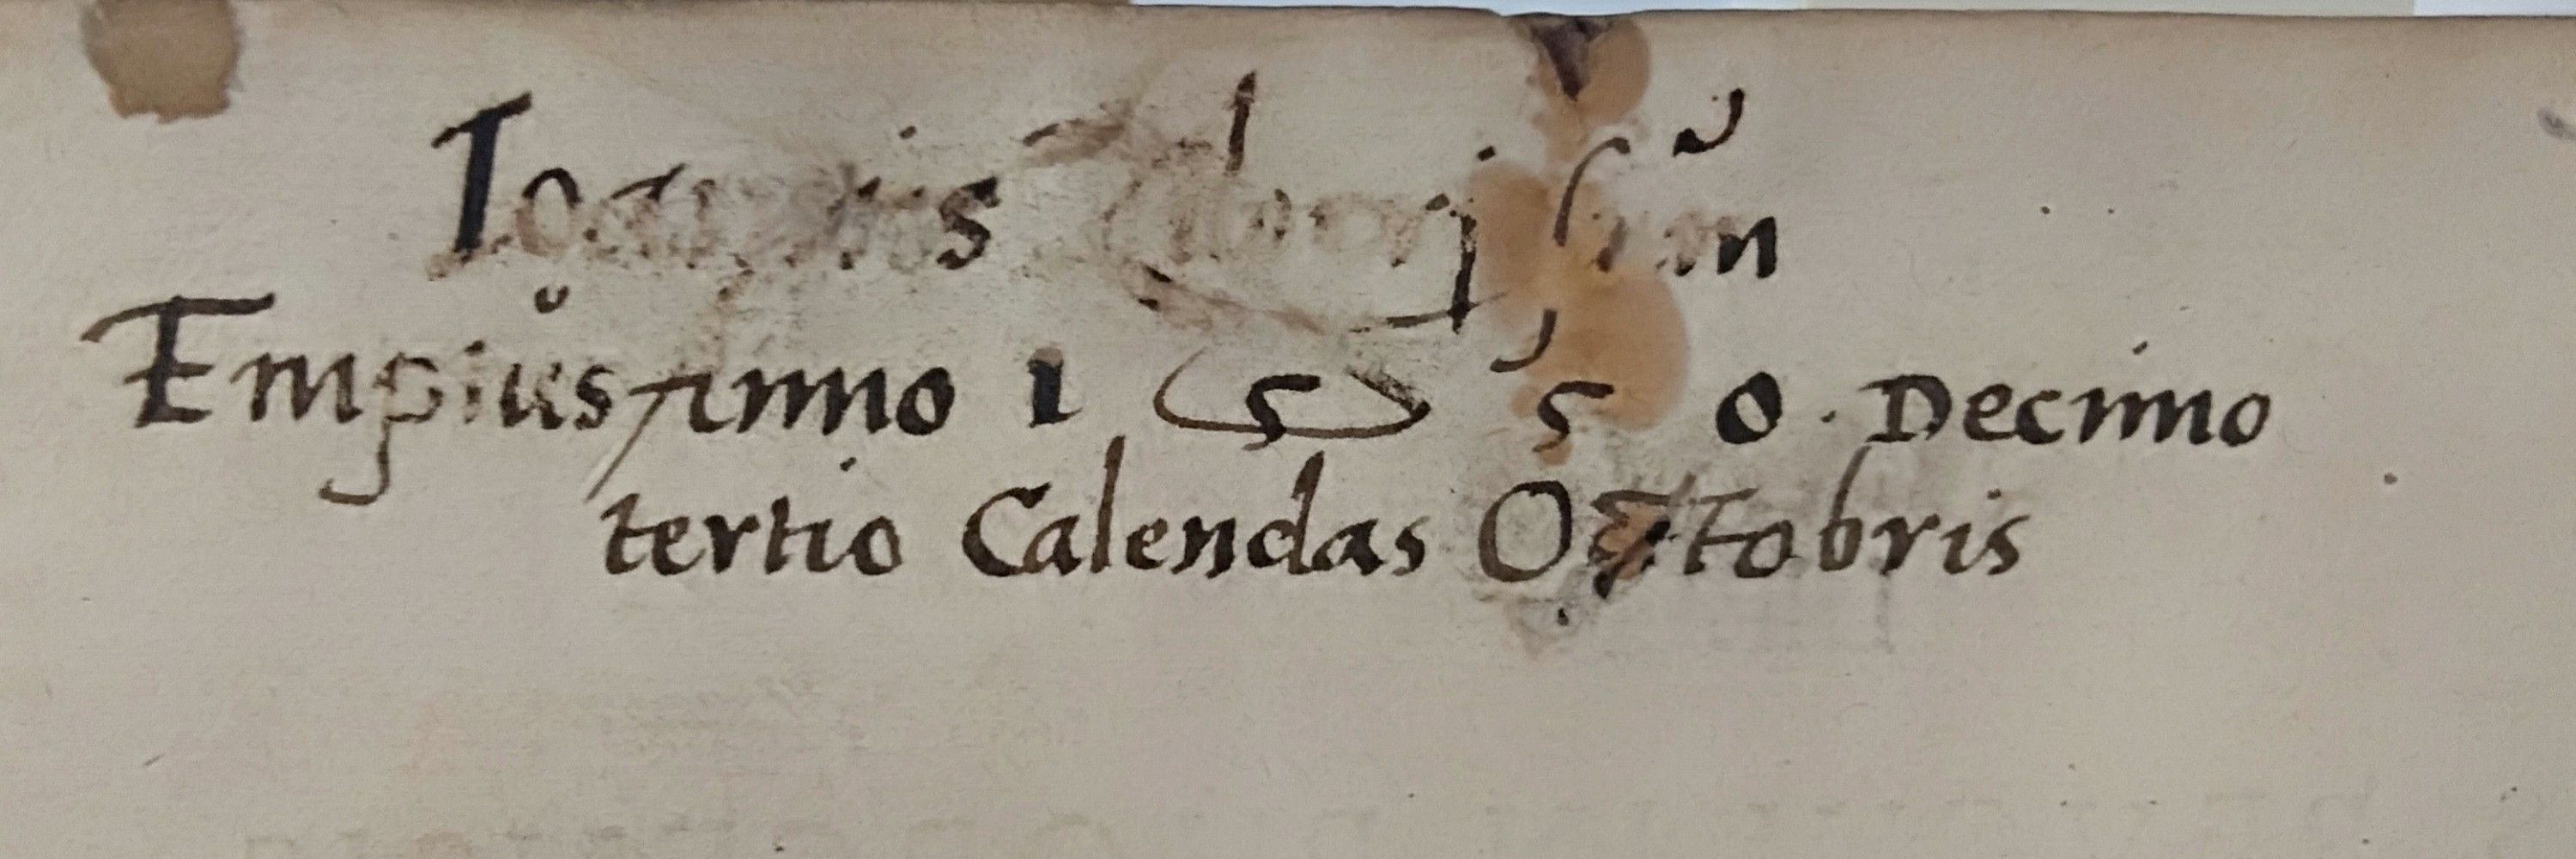 Ioannis sum
Empius anno 1 5 5 0. Decimo
tertio Calendas Octobris